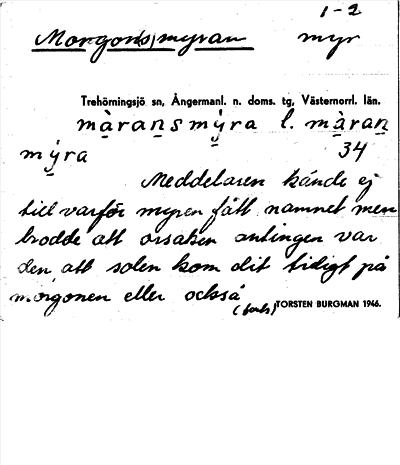 1-2
Morgon(s)myran myr
Trehörningsjö sn, Ångermanl. n. doms. tg, Västernorrl. län.
màrans mýra l. màran
mýra 34
Meddelaren kände ej
till varför myren fått namnet men
trodde att orsaken antingen var
den, att solen kom dit tidigt på
morgonen eller också
(forts) TORSTEN BURGMAN 1946.